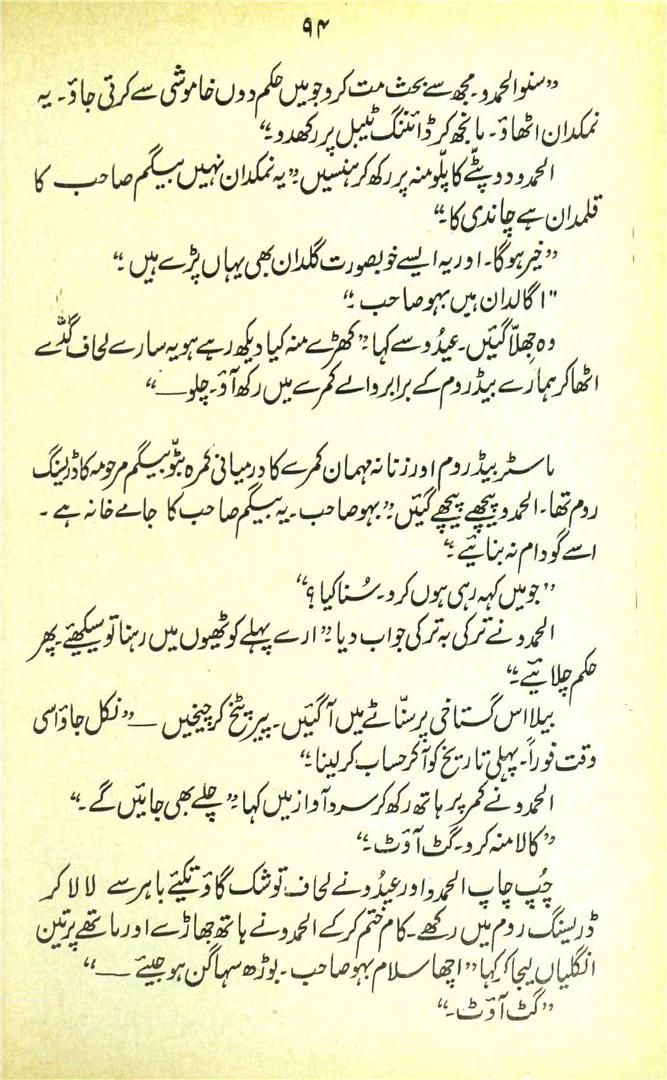 ۹۴
”سنو الحمدو۔ مجھ سے بحث مت کرو جو میں حکم دوں خاموشی سے کرتی جاؤ۔ یہ
نمکدان اٹھاؤ۔ مانجھ کر ڈائننگ ٹیبل پر رکھدو۔“
الحمدو دوپٹے کا پلّو منہ پر رکھ کر ہنسیں۔ ”یہ نمکدان نہیں بیگم صاحب کا
قلمدان ہے چاندی کا۔“
”خیر ہو گا۔ اور یہ ایسے خوبصورت گلدان بھی یہاں پڑے ہیں۔“
"اگالدان ہیں بہو صاحب۔“
وہ جھلّا گئیں۔ عیدُو سے کہا۔ ”کھڑے منہ کیا دیکھ رہے ہو یہ سارے لحاف گدّے
اٹھا کر ہمارے بیڈ روم کے برابر والے کمرے میں رکھ آؤ۔ چلو—“
ماسٹر بیڈ روم اور زنانہ مہمان کمرے کا درمیانی کمرہ بٹّو بیگم مرحومہ کا ڈریسنگ
روم تھا۔ الحمدو پیچھے پیچھے گئیں۔ ”بہو صاحب۔ یہ بیگم صاحب کا جامے خانہ ہے۔
اسے گودام نہ بنائیے۔“
”جو میں کہہ رہی ہوں کرو۔ سُنا کیا؟“
الحمدو نے ترکی بہ ترکی جواب دیا۔ ”ارے پہلے کوٹھیوں میں رہنا تو سیکھئے۔ پھر
حکم چلائیے۔“
بیلا اس گستاخی پر سنّاٹے میں آ گئیں۔ پیر پٹخ کر چیخیں — ”نکل جاؤ اسی
وقت فوراً۔ پہلی تاریخ کو آ کر حساب کر لینا۔“
الحمدو نے کمر پر ہاتھ رکھ کر سرد آواز میں کہا۔ ”چلے بھی جائیں گے۔“
”کالا منہ کرو۔ گٹ آؤٹ۔“
چُپ چاپ الحمدو اور عیدُو نے لحاف توشک گاؤ تکیئے باہر سے لا لا کر
ڈریسنگ روم میں رکھے۔ کام ختم کر کے الحمدو نے ہاتھ جھاڑے اور ماتھے پر تین
انگلیاں لیجا کر کہا ”اچھا سلام بہو صاحب۔ بوڑھ سہاگن ہو جیئے —“
”گٹ آؤٹ۔“